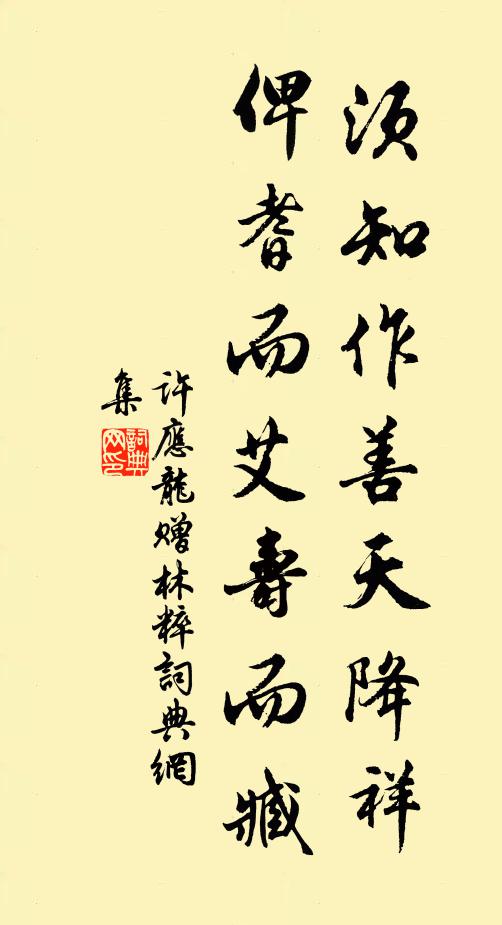 須知作善天降祥
俾耆而艾壽而臧
許應龍贈林粹詞典網
集
詞典
网印